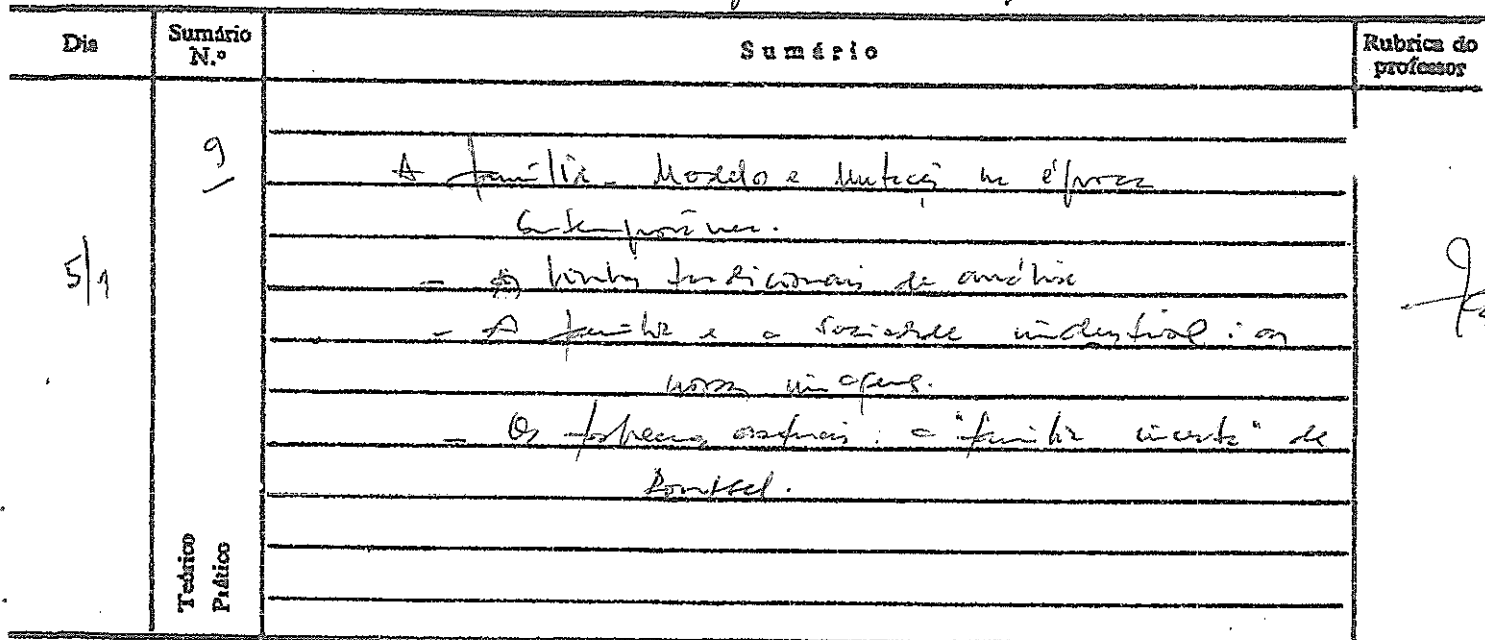 Dia
Sumário N.º
Sumário
Rubrica do professor
5/1
9
A família - Modelos e Mutações na época
Contemporânea.
- As linhas tradicionais de análise
- A família e a sociedade industrial: as
novas imagens.
- Os actuais: a "família incerta" de
Roussel.
Teórico
Prático